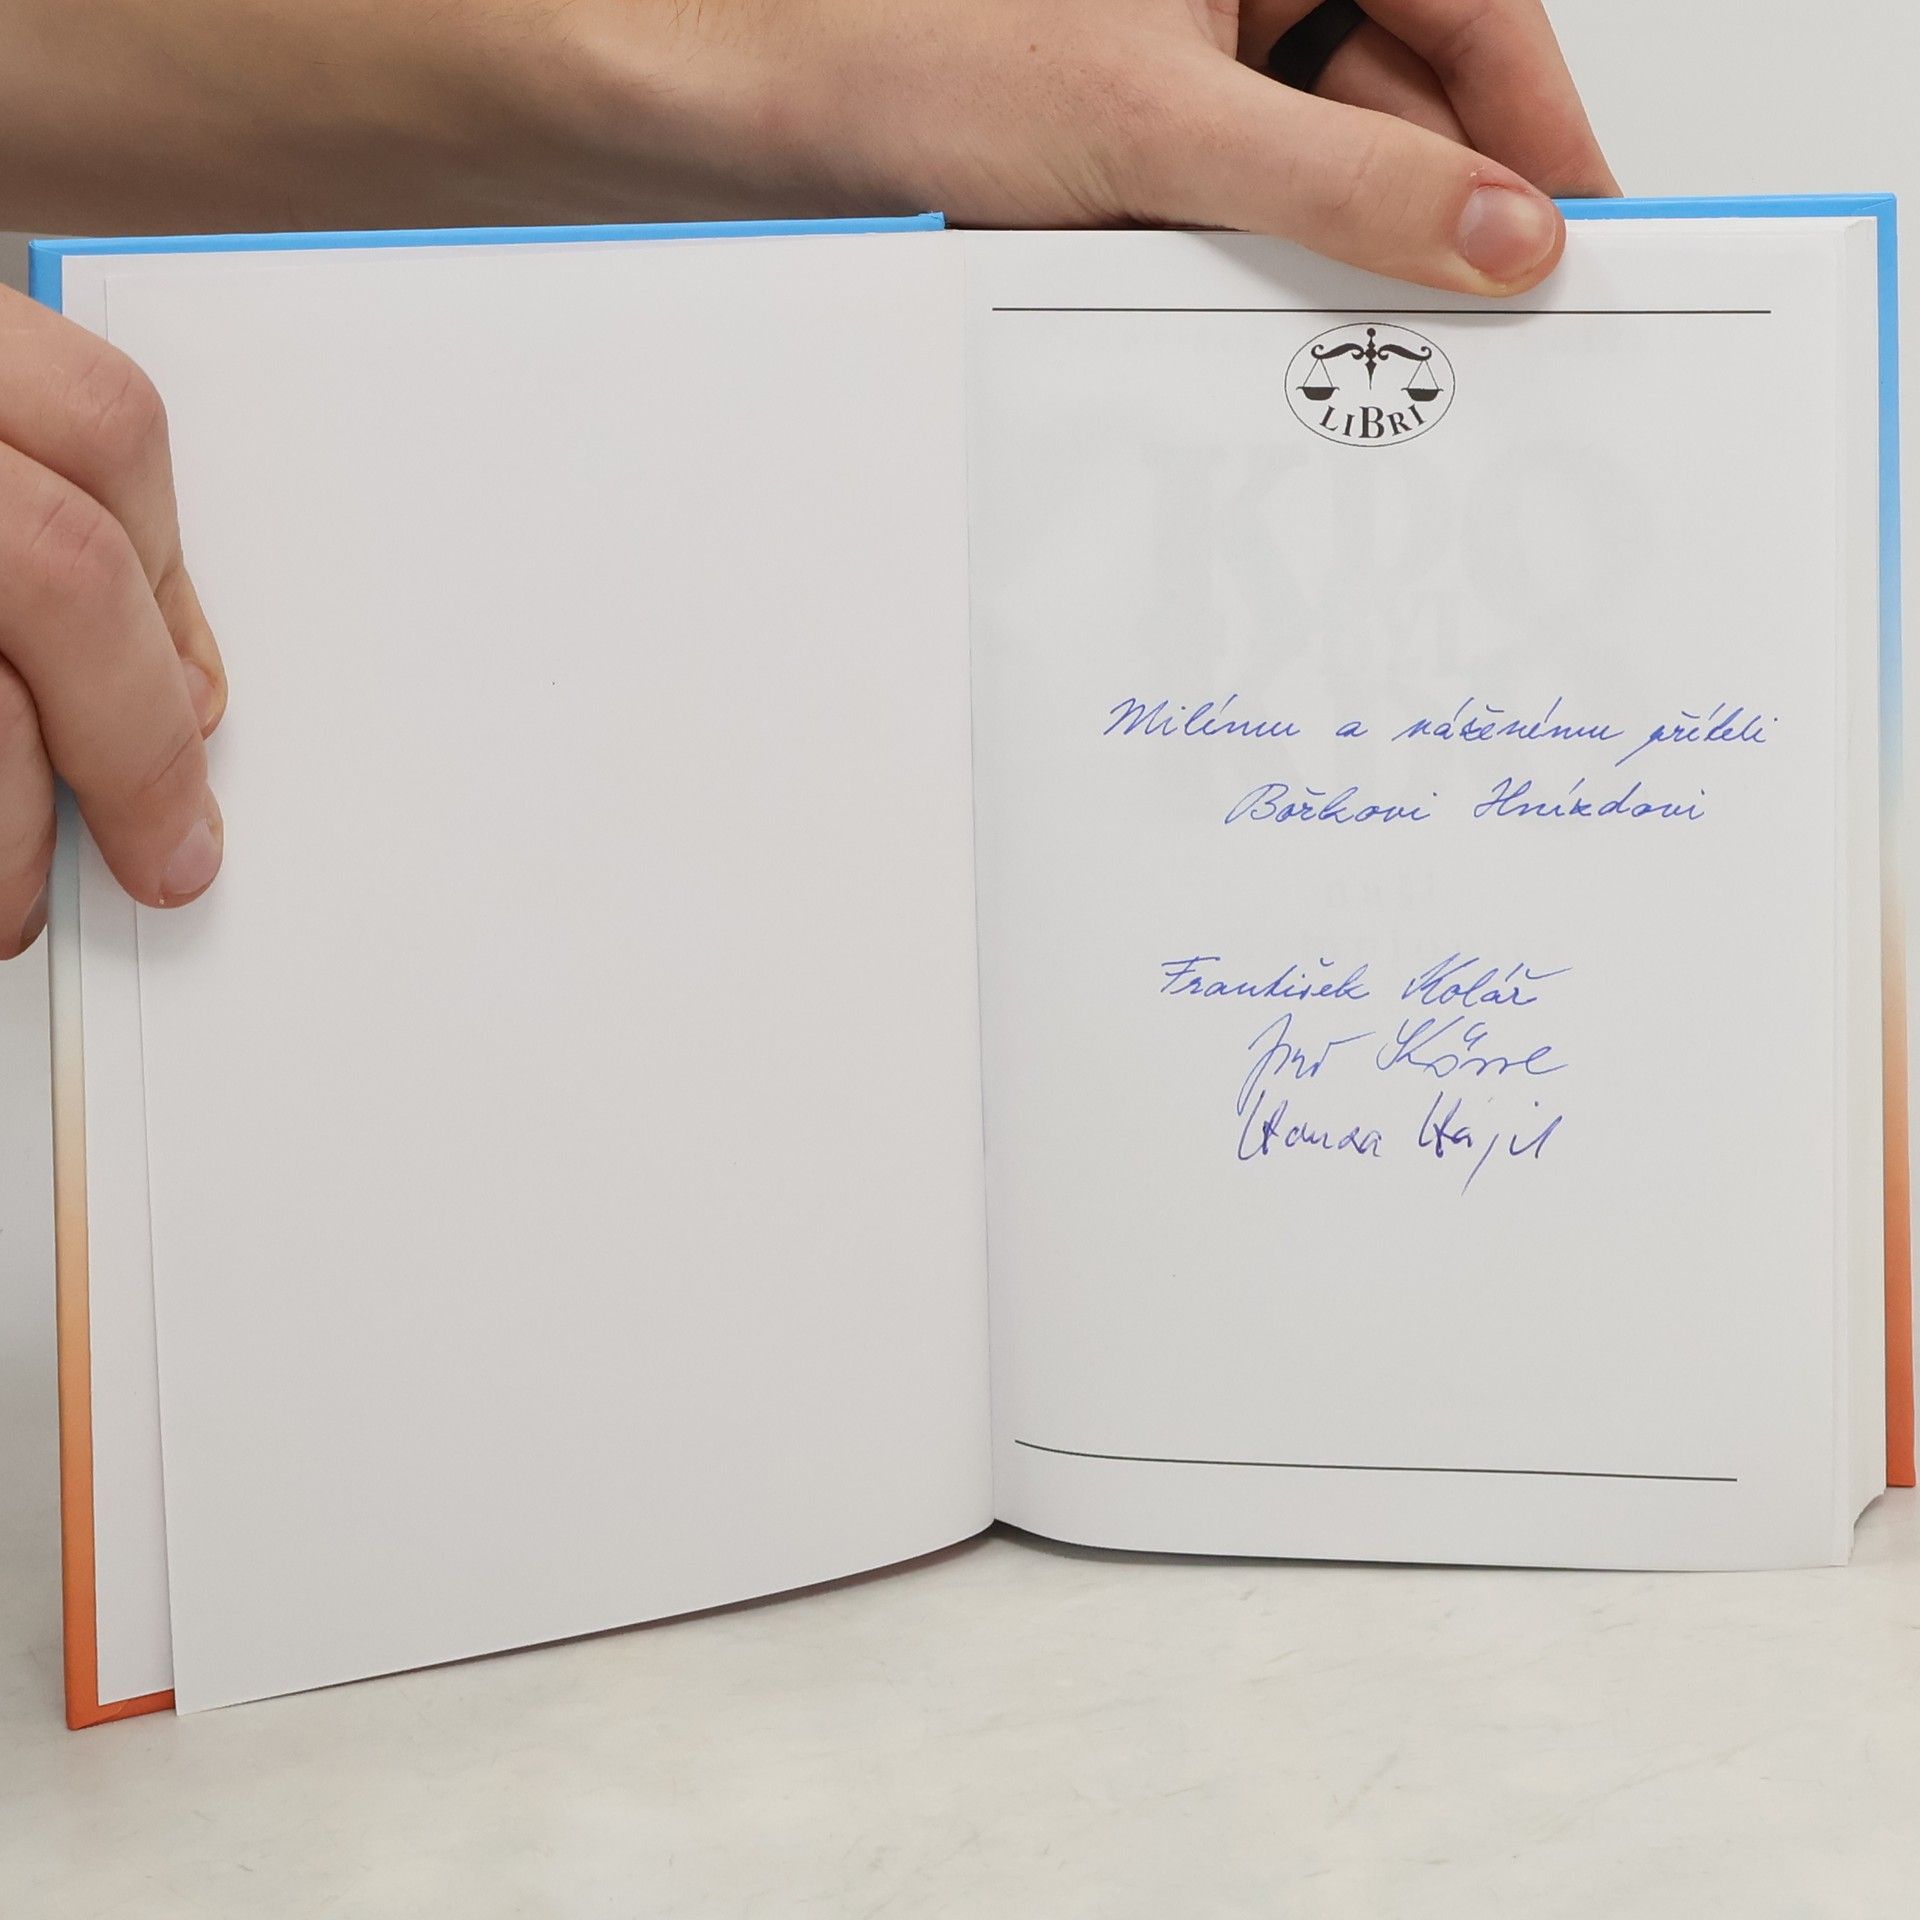 LIBRI
Milému a váženému příteli
Bořkovi Hnízdovi
František Kolář
Jiří Kössl
Honza Hájil